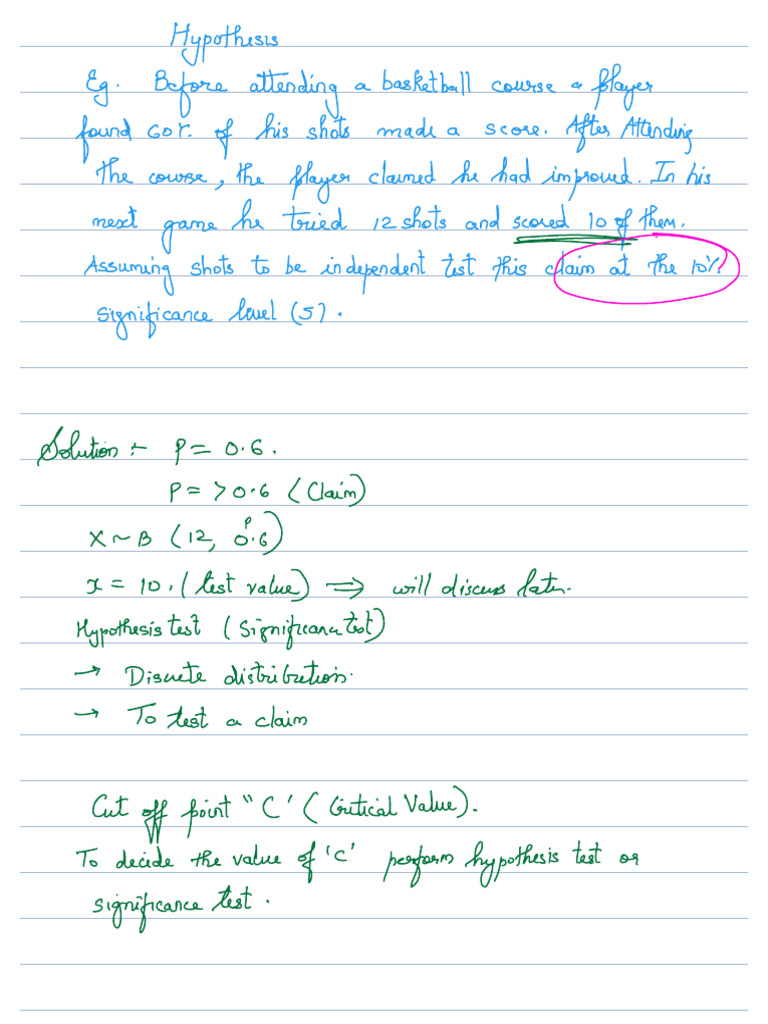 Hypothesis
Eg. Before attending a basketball course a player
found 60%. of his shots made a score. After Attending
the course, the player claimed he had improved. In his
next game he tried 12 shots and scored 10 of them.
Assuming shots to be independent test this claim at the 10%
significance level (5).
Solution :- P = 0.6.
P = > 0.6 (Claim)
p
X ~ B (12, 0.6)
x = 10. (test value) ⟹ will discuss later.
Hypothesis test (Significance test)
→ Discrete distribution.
→ To test a claim
Cut off point "C' (Critical Value).
To decide the value of 'C' perform hypothesis test or
significance test.